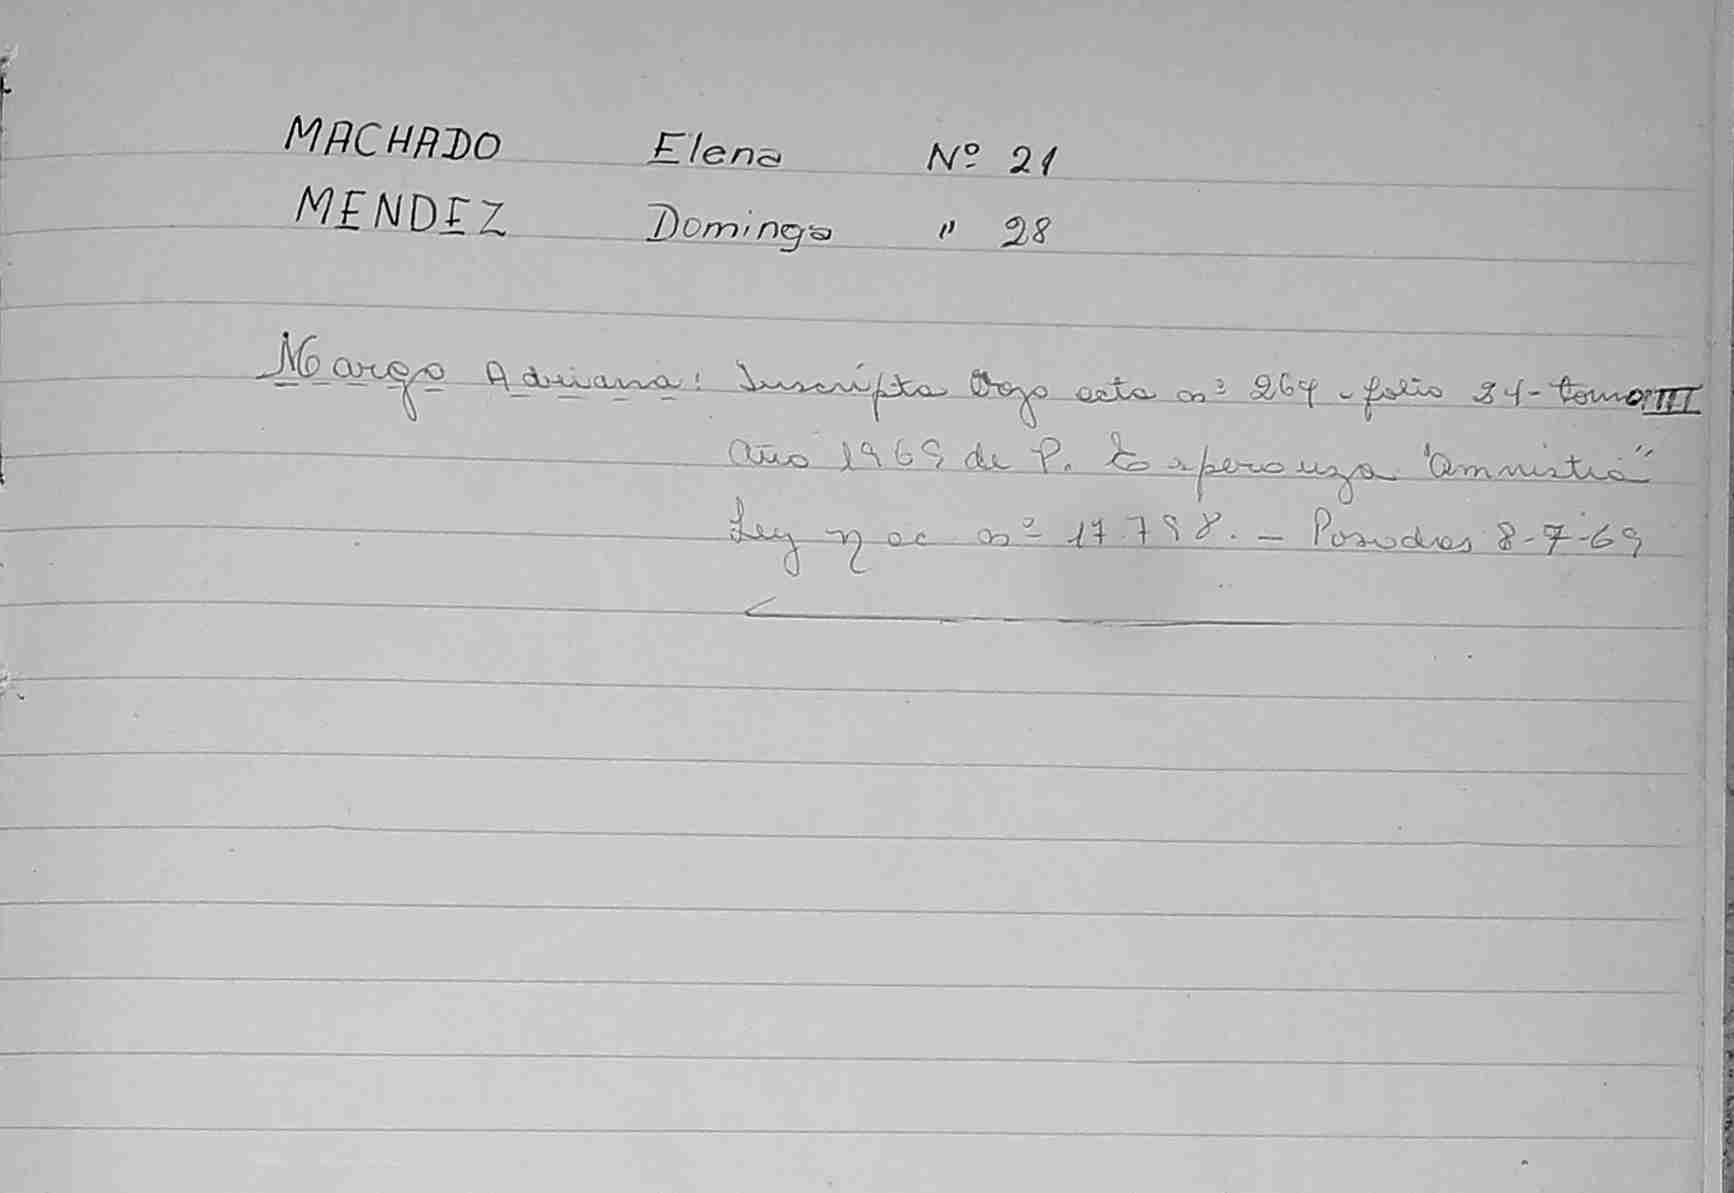 MACHADO Elena Nº 21
MENDEZ Domingo " 28
Margo Adriana: Inscripta bajo acta nº 264 - folio 34 - tomo III
año 1969 de P. Esperanza "amnistia"
Ley nac nº 17.798. - Posadas 8-7-69